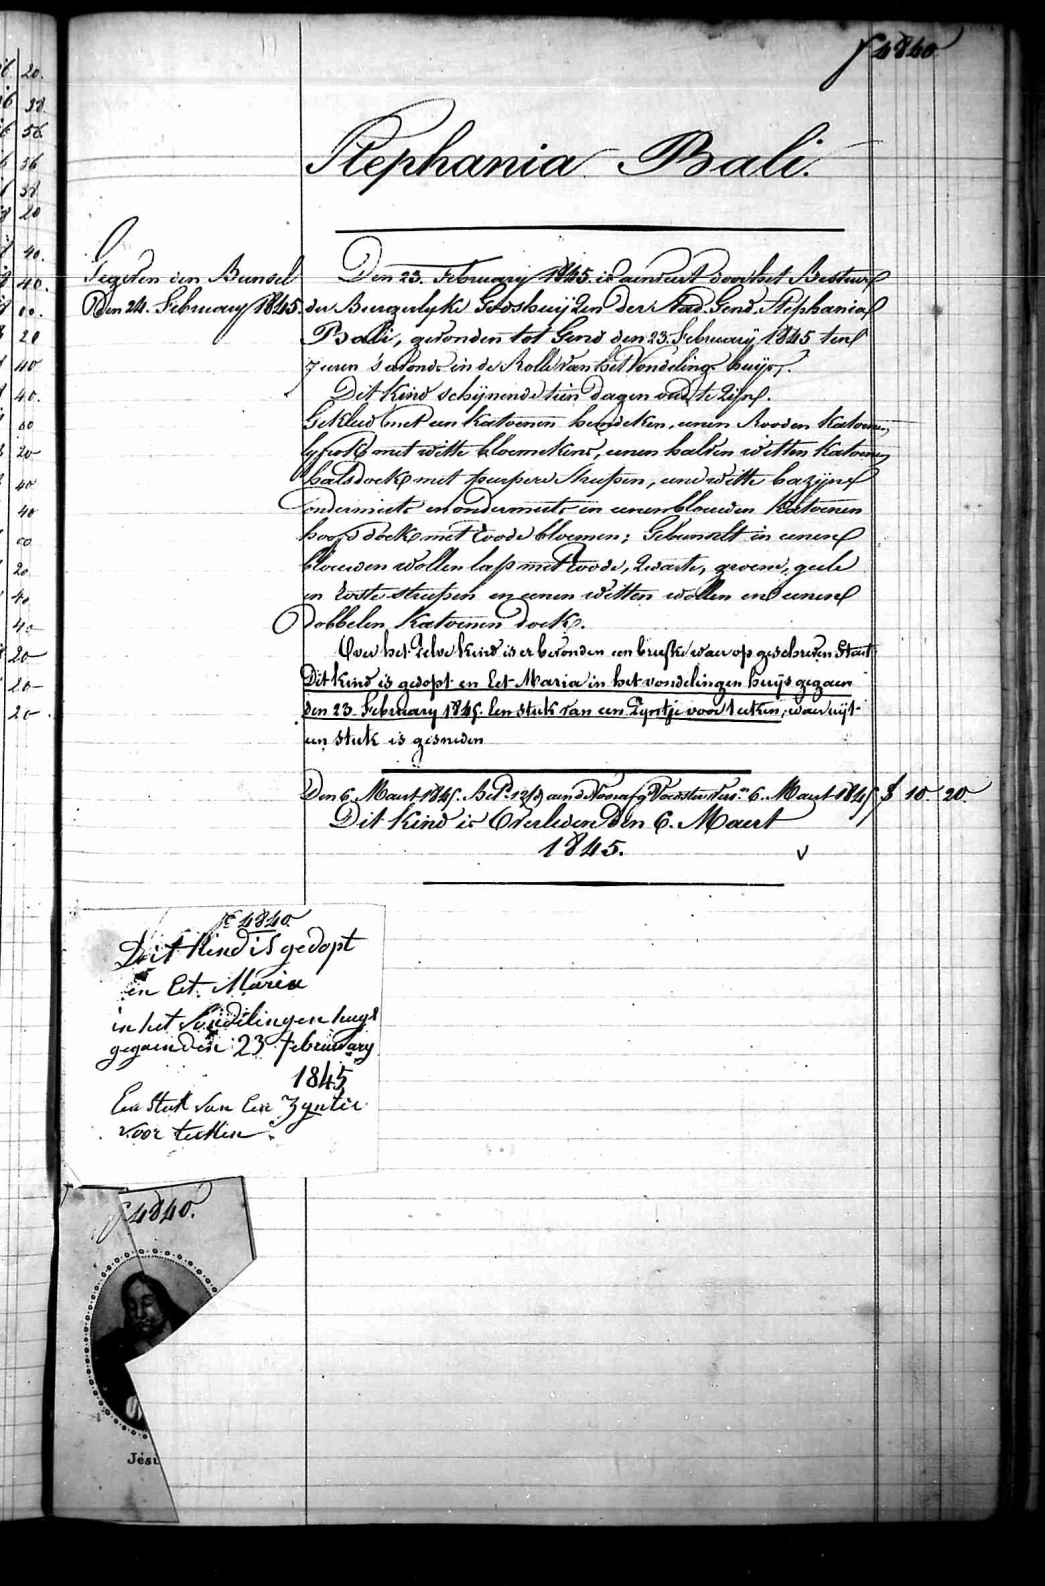 f 4840
Stephania Bali.
Gezeten in Bunsel
Den 24. February 1845.
Den 23. February 1845 is aenveert door het Bestuer
der Burgerlyke Godshuyzen der Stad Gend. Stephania
Bali, gevonden tot Gend den 23. February 1845 ten
7 euren 's avonds in de Rolle van het Vondelings huys.
Dit Kind schijnende tien dagen oud te zijn.
Gekleed met een katoenen hemdeken, eenen Rooden Katoenen
lyfrok met witte bloemekens, eenen halven witten Katoenen
halsdoek met peupere streepen, eene witte bazijne
ondermuts en ondermuts in eenen blauwen Katoenen
hoofd doek met roode bloemen; Gebunselt in eenen
blauwen wollen lap met Roode, Zwarte, groene, geele
en streepen en eenen witten wollen en eenen
dobbelen Katoenen doek.
Over het zelve kind is er bevonden een briefke waer op geschreven staet
Dit kind is gedopt en Eet Maria in het vondelingen huijs gegaen
den 23. February 1845. Een stuk van een Zyntje voor teeken, waer uijt
een stuk is gesneden
Den 6. Maert 1845. Bet. aen de Voedster 6. Maert 1845 f 10. 20
Dit Kind is Overleden Den 6. Maert
1845.
f 4840
Dit kind is gedopt
en Eet Maria
in het Vondelingen huys
gegaen den 23 february
1845
Een stuk van een Zyntie
voor teeken
f 4840.
Jésu